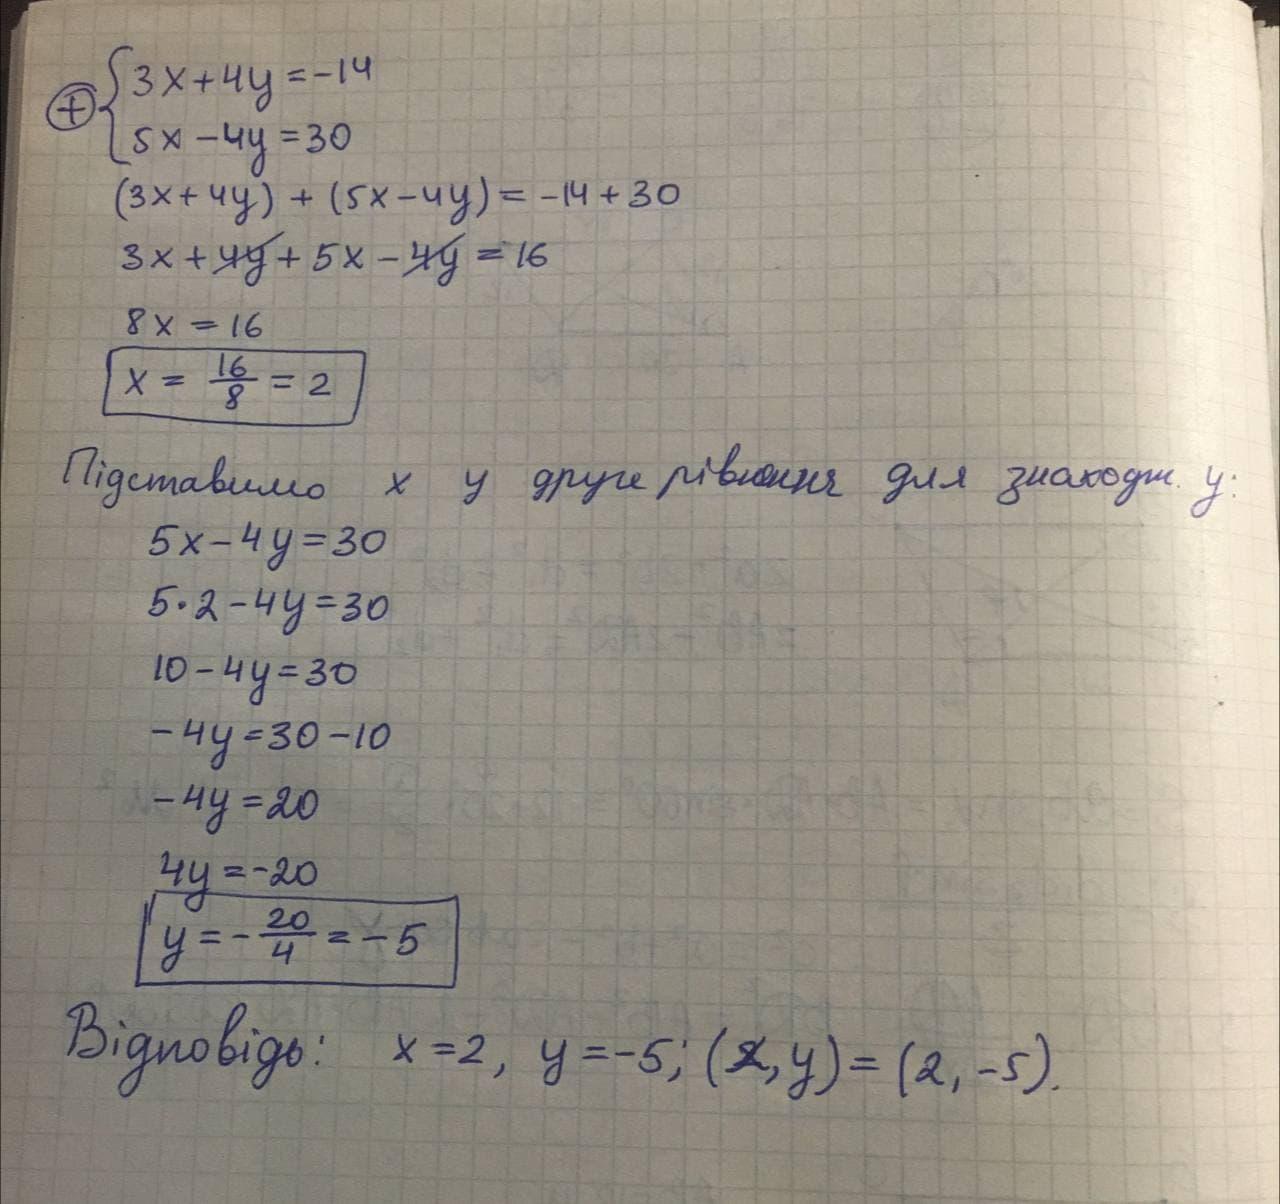 ⊕ { 3x+4y=-14
5x-4y=30
(3x+4y) + (5x-4y) = -14+30
3x+4y+5x-4y=16
8x=16
x = 16/8 = 2
Підставимо x у друге рівняння для знаходж. y:
5x-4y=30
5·2-4y=30
10-4y=30
-4y=30-10
-4y=20
4y=-20
y = -20/4 = -5
Відповідь: x=2, y=-5; (x,y)=(2,-5).